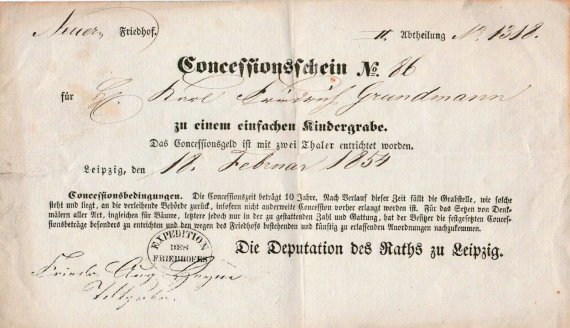 Neuer Friedhof. II. Abtheilung No. 1318.
Concessionsschein No. 86
für H. Karl Friedrich Grundmann
zu einem einfachen Kindergrabe.
Das Concessionsgeld ist mit zwei Thaler entrichtet worden.
Leipzig, den 18. Februar 1854
Concessionsbedingungen. Die Concessionszeit beträgt 10 Jahre. Nach Verlauf dieser Zeit fällt die Grabstelle, wie solche
steht und liegt, an die verleihende Behörde zurück, insofern nicht anderweite Concession vorher erlangt worden ist. Für das Setzen von Denk-
mälern aller Art, ingleichen für Bäume, letztere jedoch nur in der zu gestattenden Zahl und Gattung, hat der Besitzer die festgesetzten Concessi-
onsbeträge besonders zu entrichten und den wegen des Friedhofs bestehenden und künftig zu erlassenden Anordnungen nachzukommen.
EXPEDITION
DES
FRIEDHOFES
Die Deputation des Raths zu Leipzig.
Friedr. Aug.